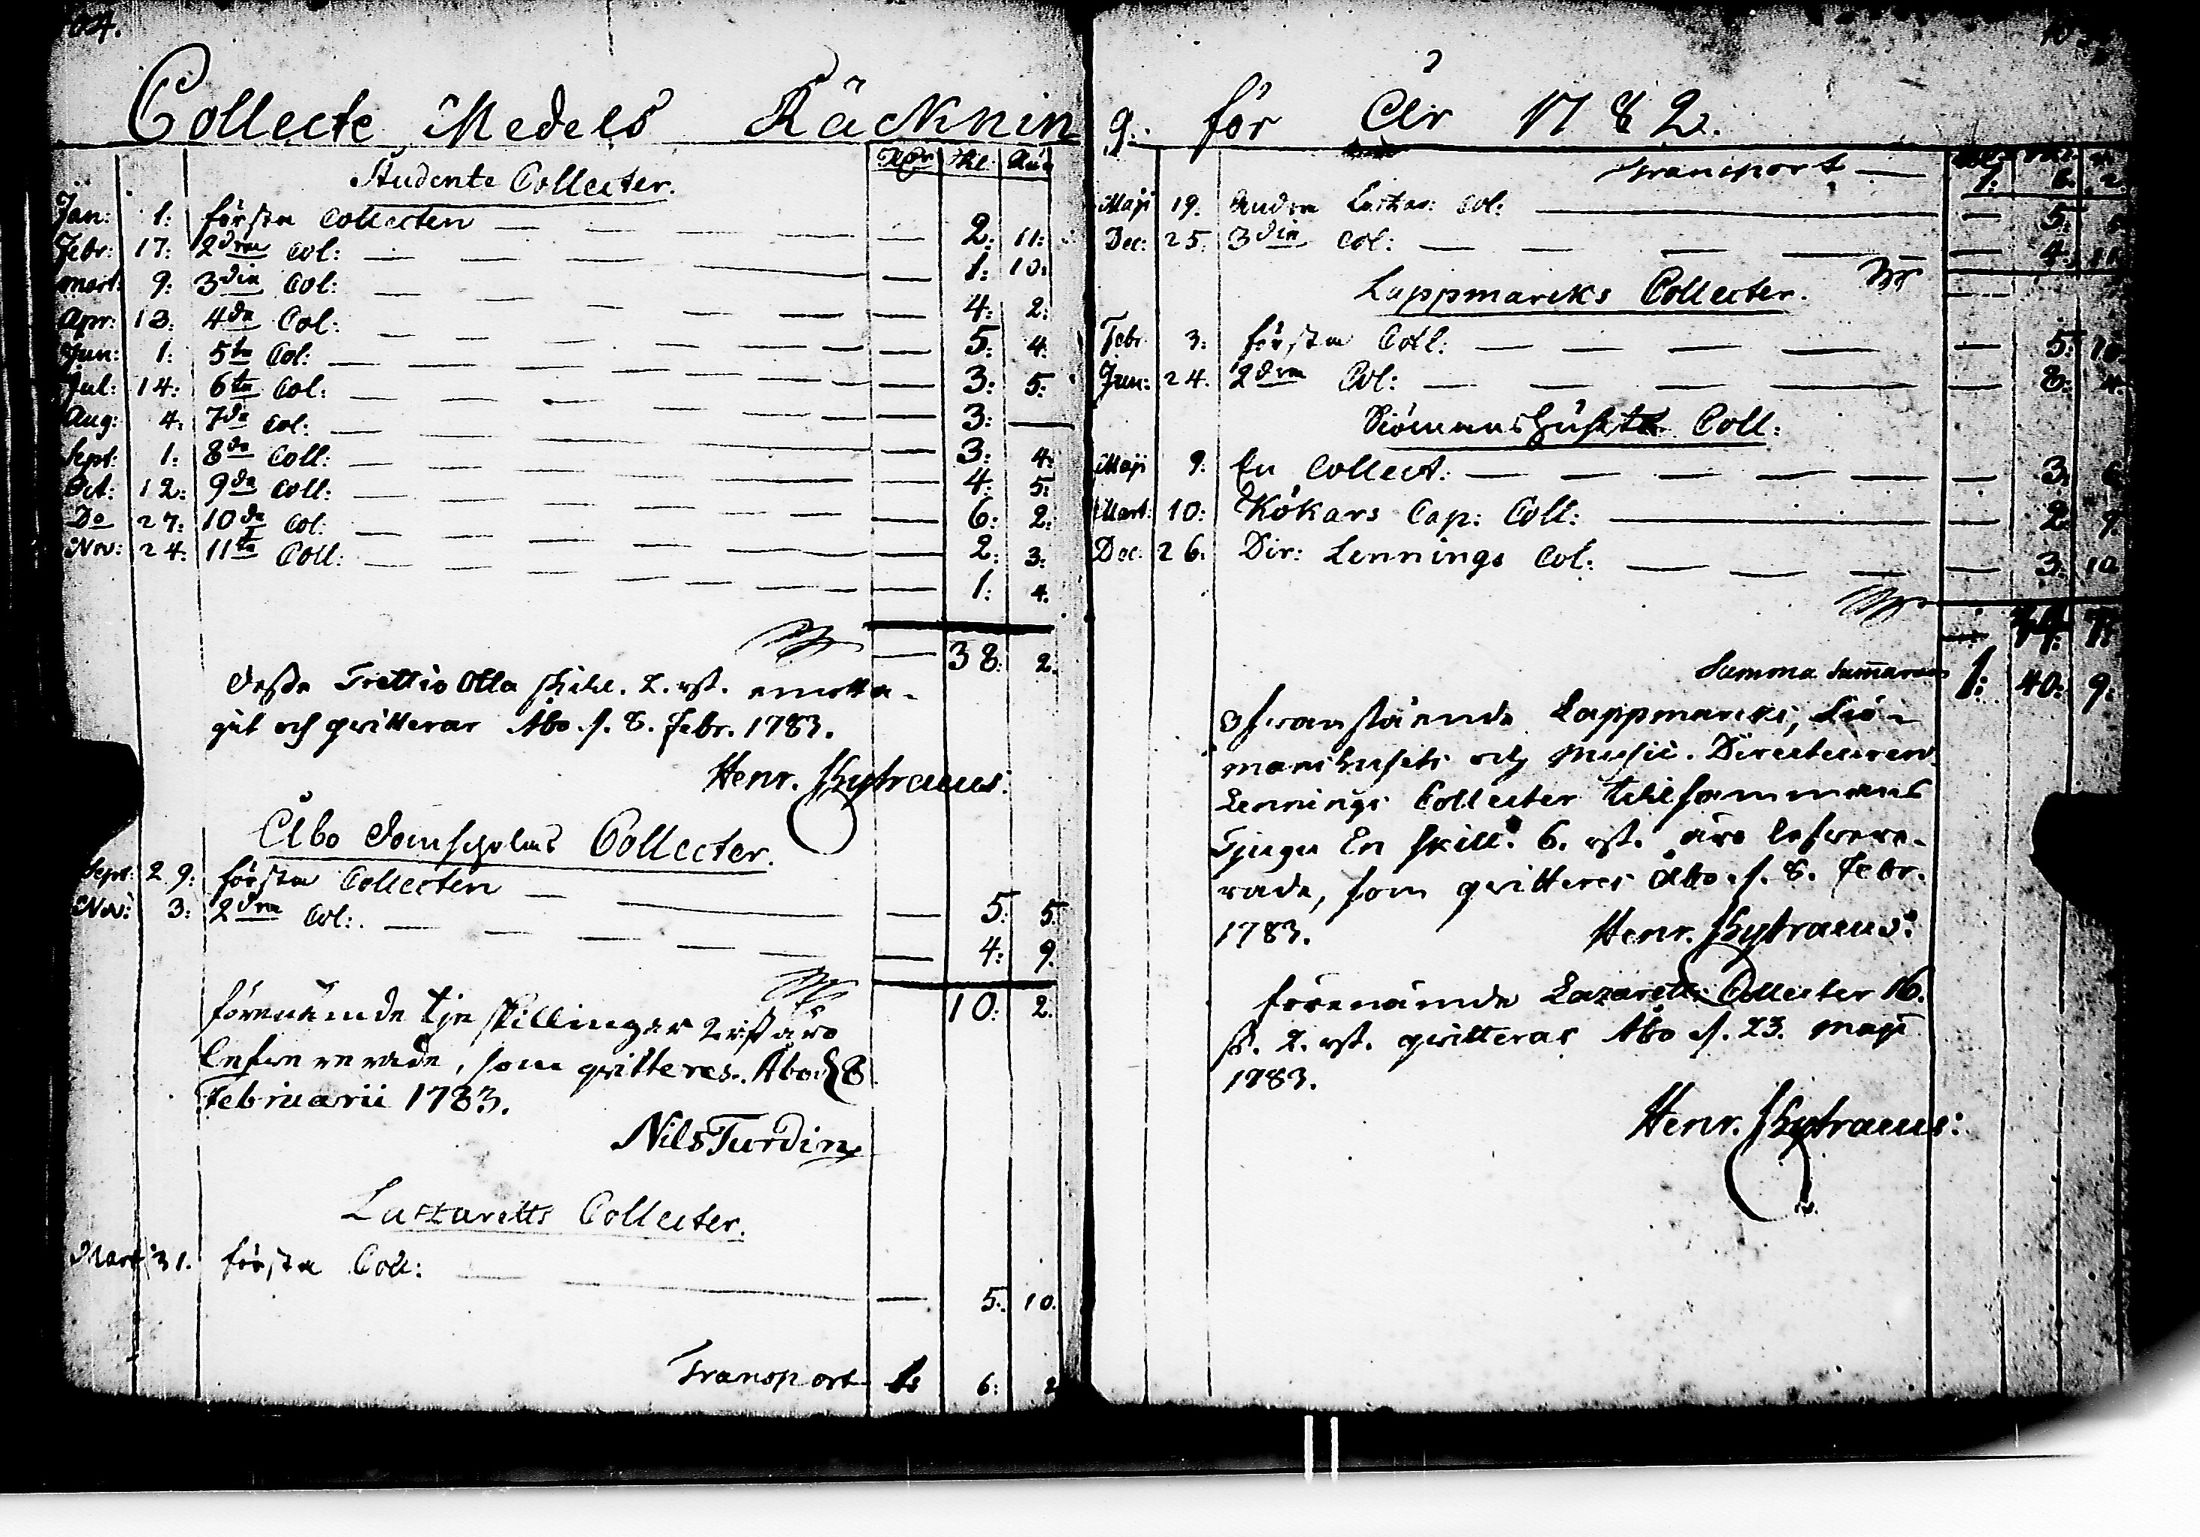 64.
Collecte Medels Räcknin
Rdr. Skl. Rus
Studente Collecter.
Jan: 1: första Collecten — 2: 11:
Febr: 17: 2dra Col: — 1: 10:
Mart: 9: 3dia Col: — 4: 2:
Apr: 13: 4da Col: — 5: 4:
Jun: 1: 5ta Col: — 3: 5:
Jul: 14: 6ta Col: — 3: —
Aug: 4: 7da Col: — 3: 4:
Sept: 1: 8de Coll: — 4: 5:
Oct: 12: 9de Coll: — 6: 2:
Do 27: 10de Col: — 2: 3:
Nov: 24: 11ta Coll: — 1: 4:
— 38: 2.
desse Trettio Otta skill. 2. rst. emotta-
git och qvitterar Åbo d. 8. Febr. 1783.
Henr.
Åbo Domscholas Collecter.
Sept: 29: första Collecten — 5: 5:
Nov: 3: 2dra Col: — 4: 9.
10: 2.
förenämde tje skillingar 2 rst äro
lefwererade, som qvitteres. Åbo d 8
Februarii 1783.
Nils Turdin
Lazaretts Collecter.
Mart 31. första Coll: — 5: 10.
Transport 1: 6: 2
g. för År 1782.
Transport — 1: 6: 2.
Maji 19. Andra Lazar: Col: — 5:
Dec: 25. 3dia Col: — 4: 11
Lappmarcks Collecter.
Febr 3: första Coll: — 5: 10
Jun: 24. 2dra Col: — 8: 4:
Siömanshusets Coll:
Maji 9: En Collect: — 3: 6
Mart: 10: Kökars Cap: Coll: — 2 9:
Dec: 26: Dir: Lennings Col: — 3: 10
34: 7:
Summa Summarum 1: 40: 9:
ofwanstående Lappmarcks, Siö-
manshusets och Music. Directeuren
Lennings Collecter tillsammans
Tjugu En skill: 6. rst. äro lefwere-
rade, som qvitteres Åbo d. 8. Febr.
1783. Henr.
förenämde Lazaretts Collecter 16.
sk. 2. rst. qvitteras Åbo d. 23. Maji
1783.
Henr.